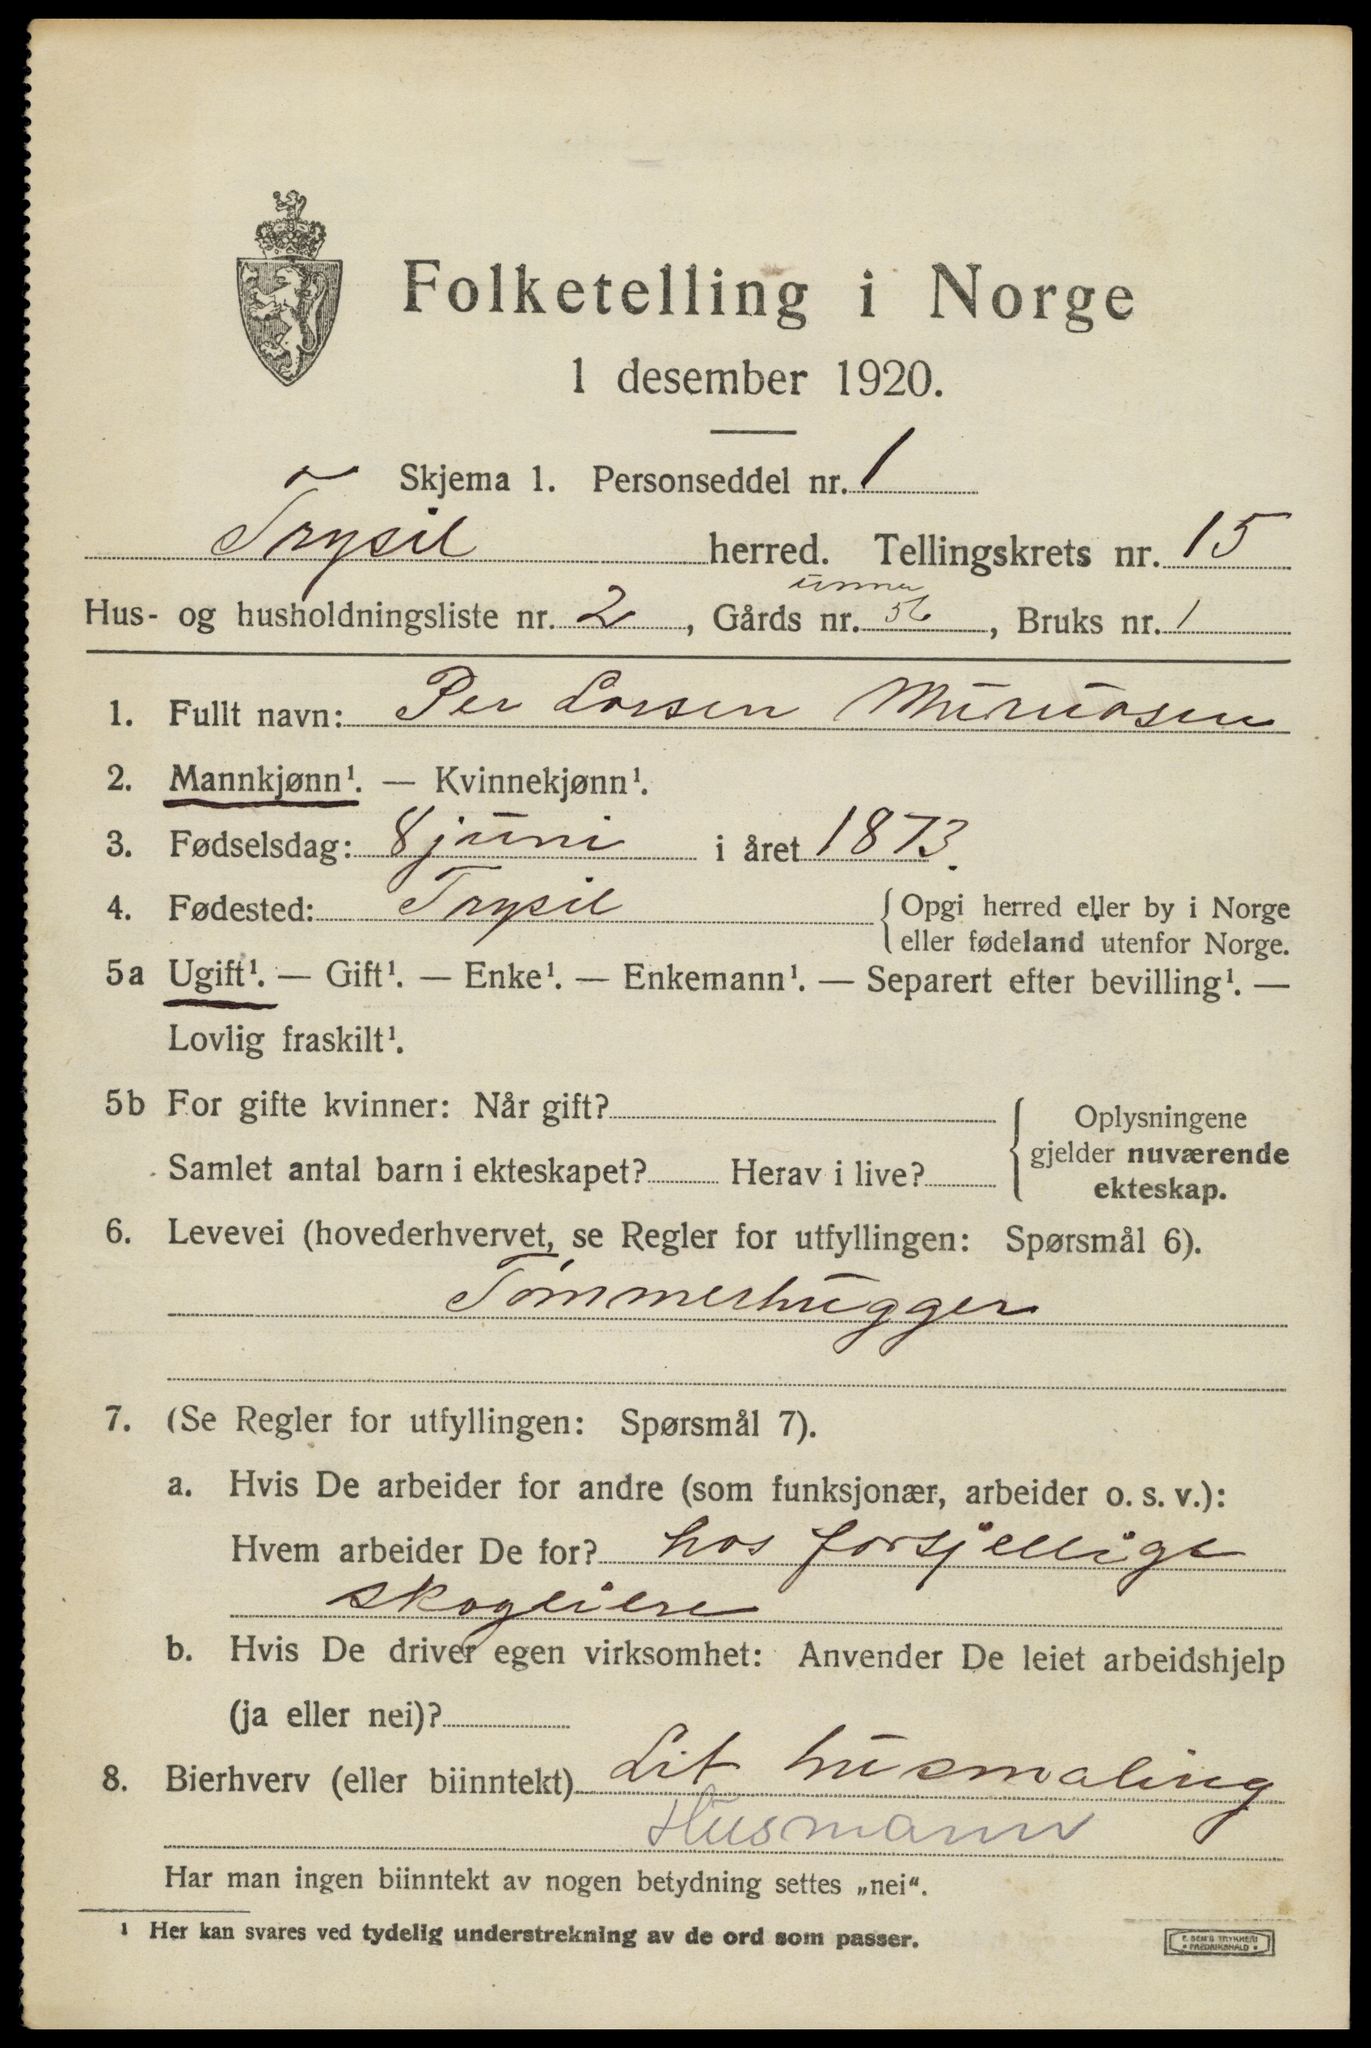 Folketelling i Norge
1 desember 1920.
Skjema 1. Personseddel nr. 1
Trysil herred. Tellingskrets nr. 15
unner
Hus- og husholdningsliste nr. 2, Gårds nr. 56, Bruks nr. 1
1. Fullt navn: Per Larsen
2. Mannkjønn¹. — Kvinnekjønn¹.
3. Fødselsdag: 8 juni i året 1873.
4. Fødested: Trysil {Opgi herred eller by i Norge
eller fødeland utenfor Norge.
5a Ugift¹. — Gift¹. — Enke¹. — Enkemann¹. — Separert efter bevilling¹. —
Lovlig fraskilt¹.
5b For gifte kvinner: Når gift?
Samlet antal barn i ekteskapet? Herav i live?
{Oplysningene
gjelder nuværende
ekteskap.
6. Levevei (hovederhvervet, se Regler for utfyllingen: Spørsmål 6).
Tømmerhugger
7. (Se Regler for utfyllingen: Spørsmål 7).
a. Hvis De arbeider for andre (som funksjonær, arbeider o. s. v.):
Hvem arbeider De for? hos forsjellige
skogeiere
b. Hvis De driver egen virksomhet: Anvender De leiet arbeidshjelp
(ja eller nei)?
8. Bierhverv (eller biinntekt) Lit husmaling
Husmann
Har man ingen biinntekt av nogen betydning settes „nei“.
¹ Her kan svares ved tydelig understrekning av de ord som passer.
E. SEM'S TRYKKERI
• FREDRIKSHALD •